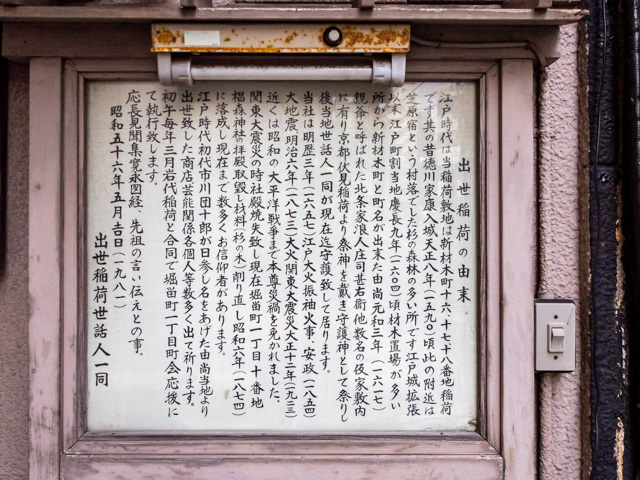 出世稲荷の由来
江戸時代は当稲荷敷地は新材木町十六十七十八番地稲荷
です共の昔徳川家康入城天正八年(一五九〇)頃此の附近は
笠原宿という村落でした杉の森林の多い所です江戸城拡張
以来江戸町割当地慶長九年(一六〇四)頃材木置場が多い
所から新材木町と町名が出来た由尚元和三年(一六一七)
親爺と呼ばれた北条家浪人庄司甚右衛他数名の仮家敷内
に有り京都伏見稲荷より祭神を戴き守護神として祭りし
後当地世話人一同が現在迄守護致して居ります。
当社は明歴三年(一六五七)江戸大火振袖火事・安政(一八五四)
大地震明治六年(一八七三)大火関東大震災大正十二年(一九二三)
近くは昭和の大平洋戦争まで本尊災禍を免かれました。
関東大震災の時社殿焼失致し現在堀留町一丁目十番地
椙森神社の拝殿取毀し材料(杉の木)削り直し昭和六年(一八七四)
に落成し現在まで数多くお信仰者があります。
江戸時代初代市川団十郎が日参し名をあげた由尚当地より
出世致した商店芸能関係各個人等数多く出て祈ります。
初午毎年三月岩代稲荷と合同で堀留町一丁目町会応援に
て執行致します。
応長見聞集寛永図経 先祖の言い伝えとの事。
昭和五十六年五月吉日(一九八一)
出世稲荷世話人一同